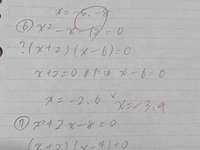 x = -5, -8
⑥ x² - x - 12 = 0
? (x+2)(x-6)=0
x+2=0 または x-6=0
x = -2, 6 x = -3, 4
⑦ x²+2x-8=0
(x+2)(x-4)=0